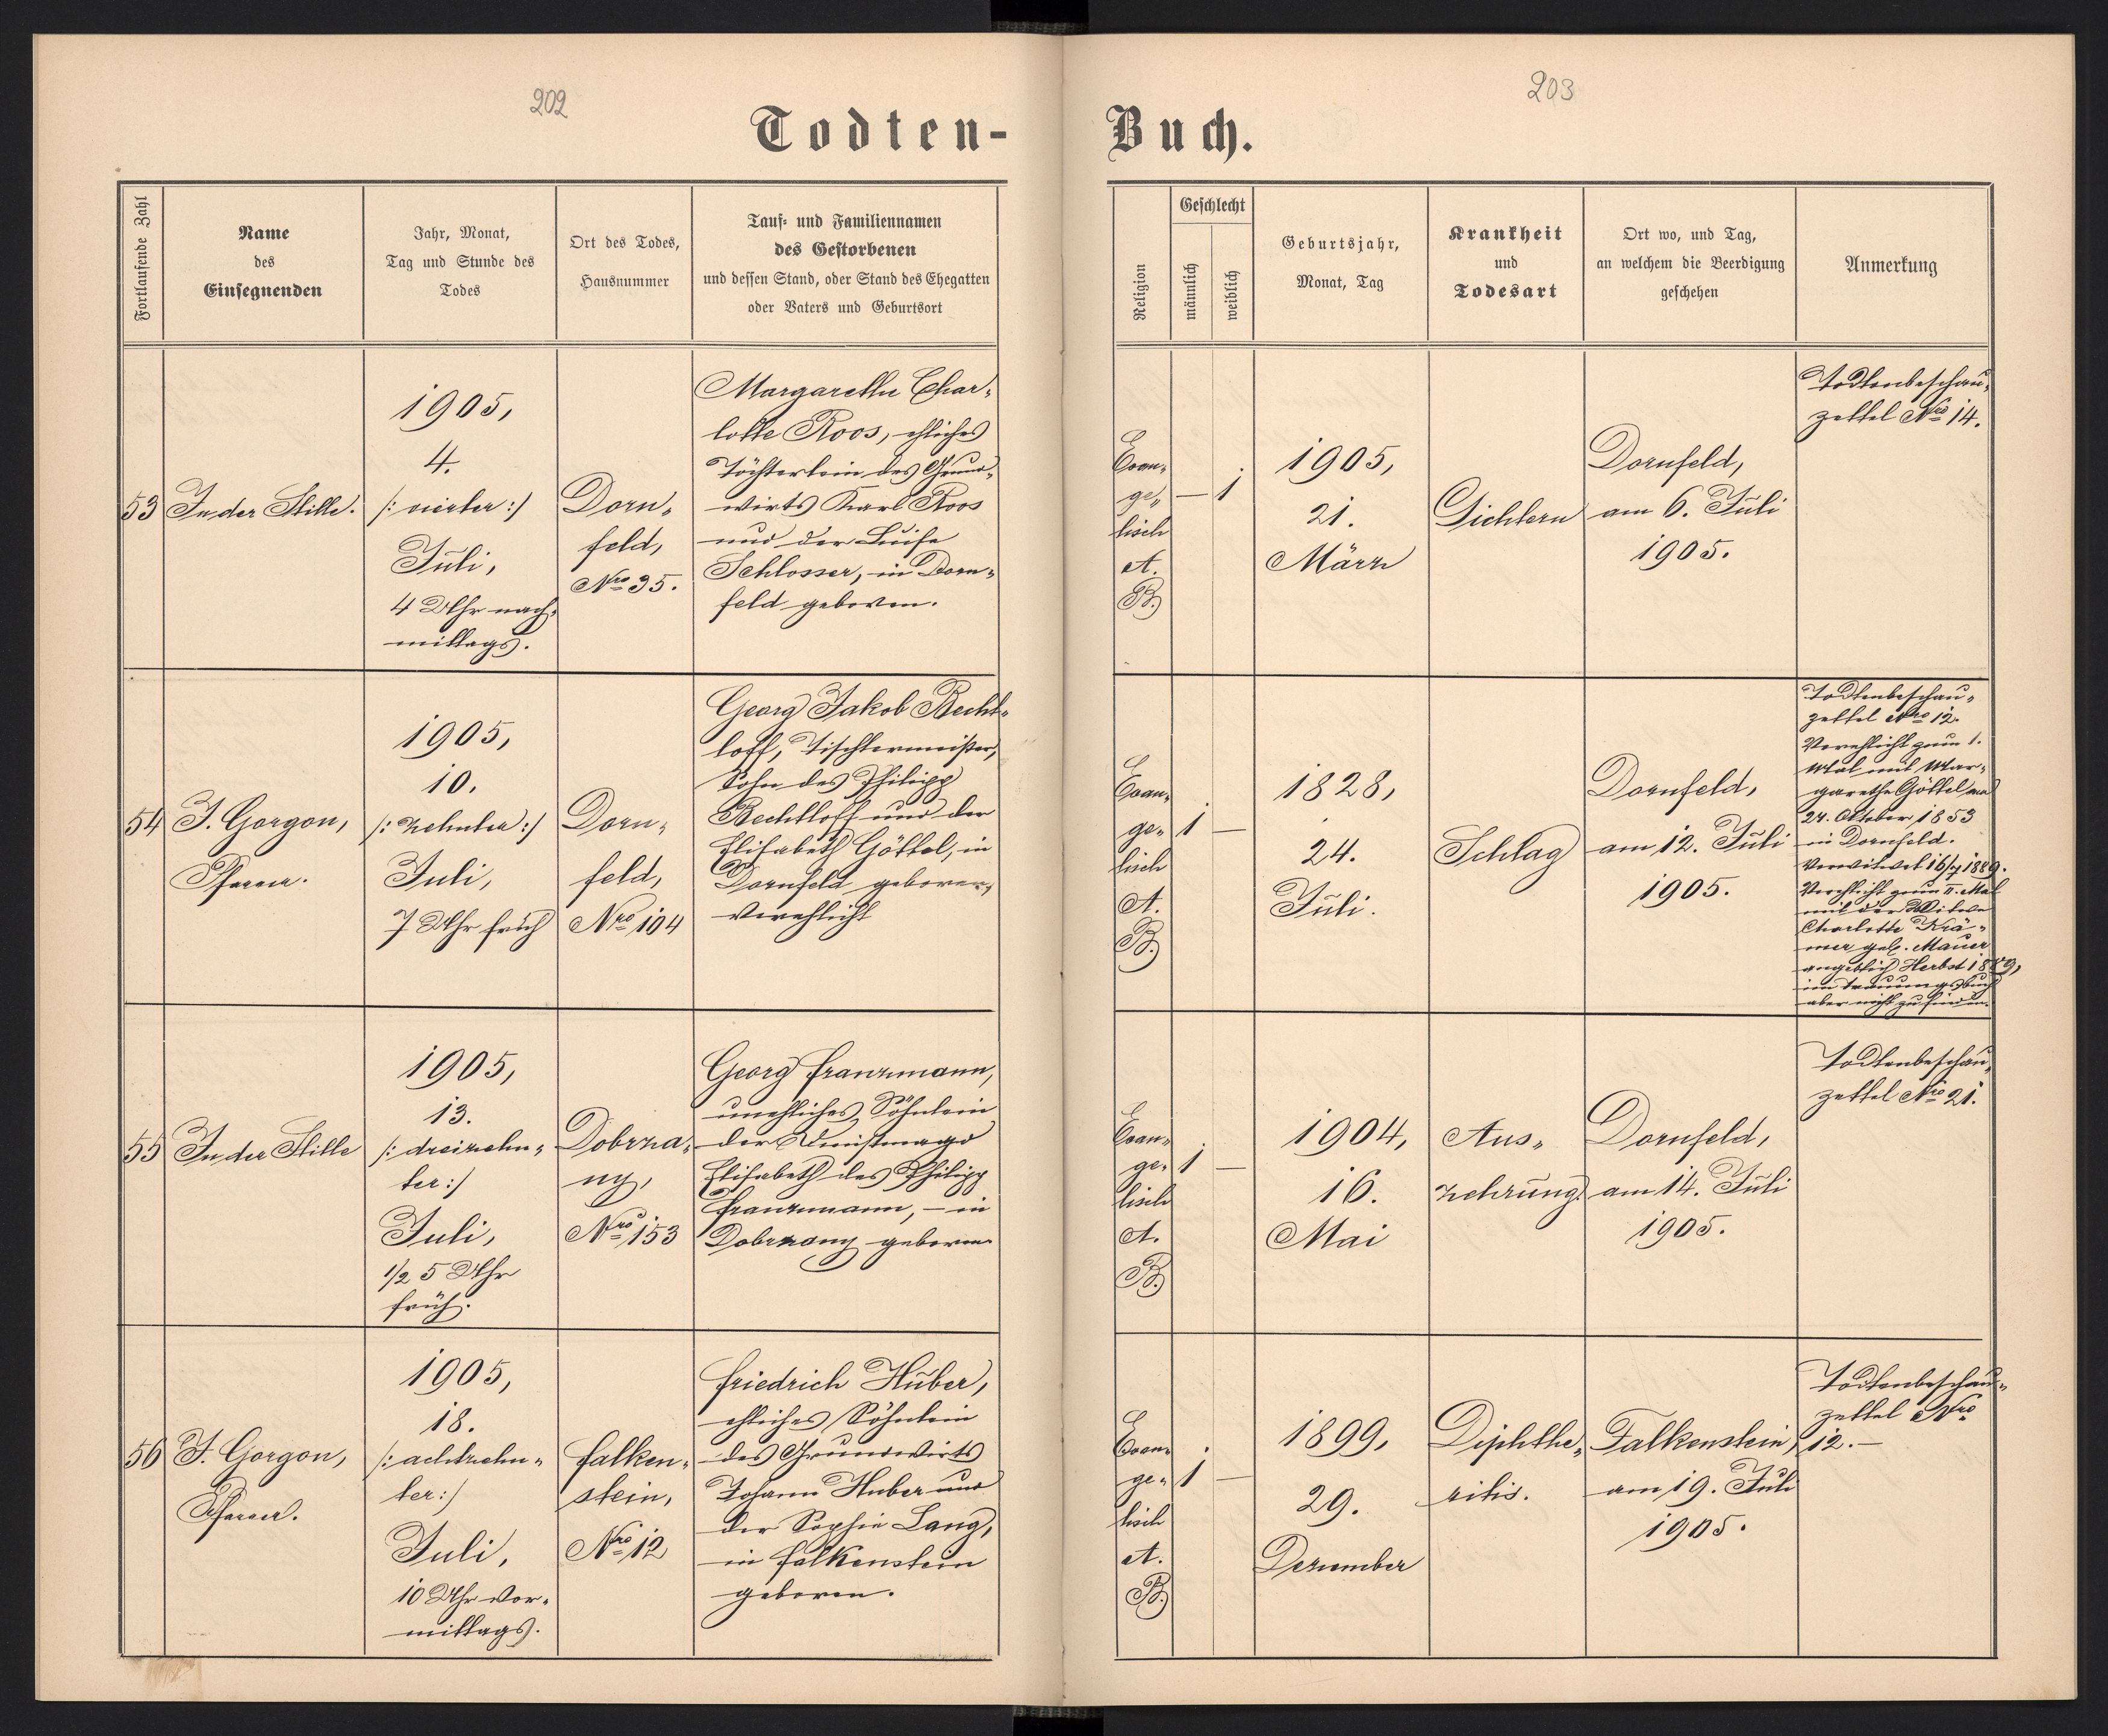 202
203
Todten-
Buch.
Fortlaufende Zahl
Name
des
Einsegnenden
Jahr, Monat,
Tag und Stunde des
Todes
Ort des Todes,
Hausnummer
Tauf- und Familiennamen
des Gestorbenen
und dessen Stand, oder Stand des Ehegatten
oder Vaters und Geburtsort
Religion
Geschlecht
männlich
weiblich
Geburtsjahr,
Monat, Tag
Krankheit
und
Todesart
Ort wo, und Tag,
an welchem die Beerdigung
geschehen
Anmerkung
53
In der Stille.
1905,
4.
/: vierter :/
Juli,
4 Uhr nach-
mittags.
Dorn-
feld,
Nro 35.
Margaretha Char-
lotte Roos, ehliches
Töchterlein des Grund-
wirts Karl Roos
und der Luise
Schlosser, in Dorn-
feld geboren.
Evan-
ge-
lisch
A.
B.
— 1
1905,
21.
März
Gichtern
Dornfeld,
am 6. Juli
1905.
Todtenbeschau-
zettel Nro 14.
54
J. Gorgon,
Pfarrer.
1905,
10.
/: zehnter :/
Juli,
7 Uhr früh
Dorn-
feld,
Nro 104
Georg Jakob Becht-
loff, Tischlermeister,
Sohn des Philipp
Bechtloff und der
Elisabeth Göttel, in
Dornfeld geboren,
verehlicht
Evan-
ge-
lisch
A.
B.
1 —
1828,
24.
Juli.
Schlag
Dornfeld,
am 12. Juli
1905.
Todtenbeschau-
zettel Nro 12.
Verehlicht zum 1.
Mal mit Mar-
garethe Göttel am
24. Oktober 1853
in Dornfeld.
Verwitwet 16/7 1889.
Verehlicht zum II. Mal
mit der Witwe
Charlotte Krä-
mer geb. Mauer
angeblich Herbst 1889,
im Trauungsbuch
aber nicht zu finden.
55
In der Stille
1905,
13.
/: dreizehn-
ter :/
Juli,
1/2 5 Uhr
früh.
Dobrza-
ny,
Nro 153
Georg Franzmann,
unehliches Söhnlein
der Dienstmagd
Elisabeth des Philipp
Franzmann, – in
Dobrzany geboren
Evan-
ge-
lisch
A.
B.
1 —
1904,
16.
Mai
Aus-
zehrung
Dornfeld,
am 14. Juli
1905.
Todtenbeschau-
zettel Nro 21.
56
J. Gorgon,
Pfarrer.
1905,
18.
/: achtzehn-
ter :/
Juli,
10 Uhr vor-
mittags.
Falken-
stein,
Nro 12
Friedrich Huber,
ehliches Söhnlein
des Grundwirts
Johann Huber und
der Sophie Lang,
in Falkenstein
geboren.
Evan-
ge-
lisch
A.
B.
1 —
1899,
29.
Dezember
Diphthe-
ritis.
Falkenstein,
am 19. Juli
1905.
Todtenbeschau-
zettel Nro
12. –